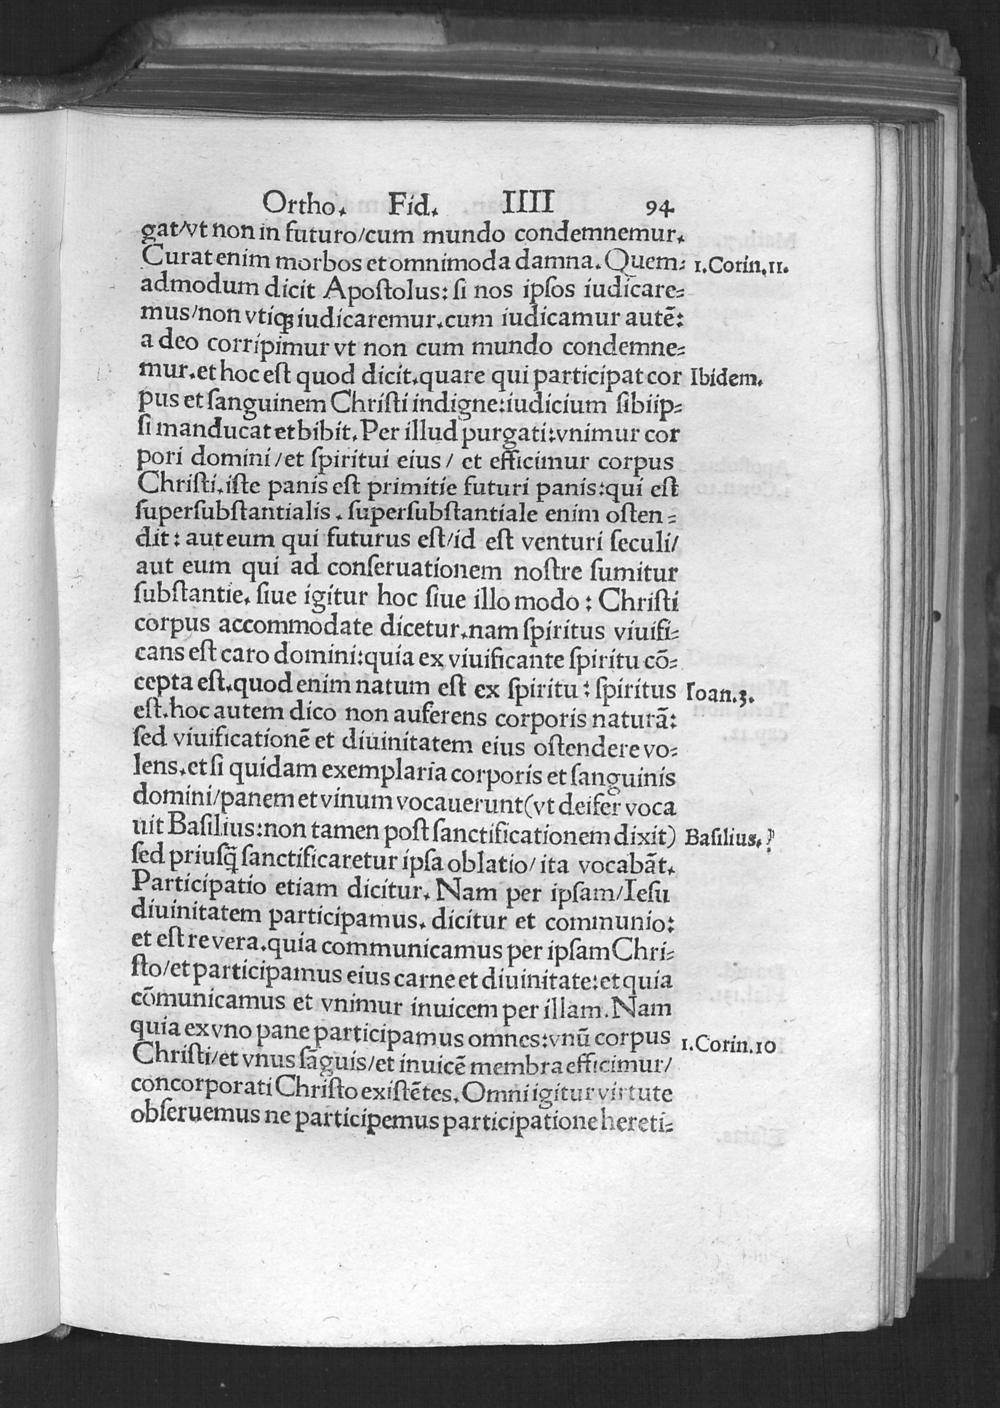 Ortho. Fid. IIII 94
gat/vt non in futuro/cum mundo condemnemur.
Curat enim morbos et omnimoda damna. Quem= 1.Corin.11.
admodum dicit Apostolus: si nos ipsos iudicare=
mus/non vtiqꝫ iudicaremur.cum iudicamur autē:
a deo corripimur vt non cum mundo condemne=
mur.et hoc est quod dicit.quare qui participat cor Ibidem.
pus et sanguinem Christi indigne:iudicium sibiip=
si manducat et bibit. Per illud purgati:vnimur cor
pori domini/et spiritui eius/ et efficimur corpus
Christi.iste panis est primitie futuri panis:qui est
supersubstantialis. supersubstantiale enim osten=
dit: aut eum qui futurus est/id est venturi seculi/
aut eum qui ad conseruationem nostre sumitur
substantie. siue igitur hoc siue illo modo: Christi
corpus accommodate dicetur.nam spiritus viuifi=
cans est caro domini:quia ex viuificante spiritu cō=
cepta est.quod enim natum est ex spiritu: spiritus Ioan.3.
est.hoc autem dico non auferens corporis naturā:
sed viuificationē et diuinitatem eius ostendere vo=
lens.et si quidam exemplaria corporis et sanguinis
domini/panem et vinum vocauerunt(vt deifer voca
uit Basilius:non tamen post sanctificationem dixit) Basilius.
sed priusq̄ sanctificaretur ipsa oblatio/ita vocabāt.
Participatio etiam dicitur. Nam per ipsam/Iesu
diuinitatem participamus. dicitur et communio:
et est re vera.quia communicamus per ipsam Chri=
sto/et participamus eius carne et diuinitate:et quia
cōmunicamus et vnimur inuicem per illam. Nam
quia ex vno pane participamus omnes:vnū corpus 1.Corin.10
Christi/et vnus sāguis/et inuicē membra efficimur/
concorporati Christo existētes. Omni igitur virtute
obseruemus ne participemus participatione hereti=